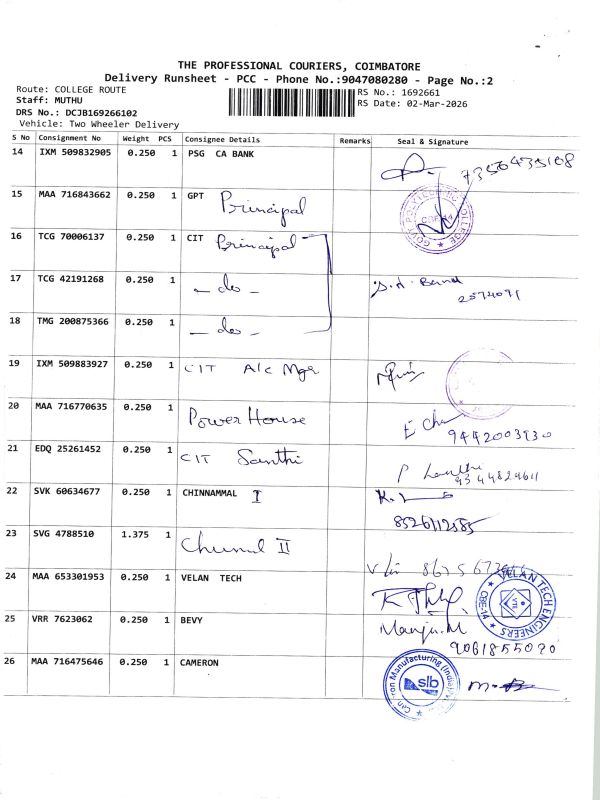 THE PROFESSIONAL COURIERS, COIMBATORE
Delivery Runsheet - PCC - Phone No.:9047080280 - Page No.:2
Route: COLLEGE ROUTE
Staff: MUTHU
DRS No.: DCJB169266102
Vehicle: Two Wheeler Delivery
RS No.: 1692661
RS Date: 02-Mar-2026
S No Consignment No Weight PCS Consignee Details Remarks Seal & Signature
14 IXM 509832905 0.250 1 PSG CA BANK
15 MAA 716843662 0.250 1 GPT Principal
16 TCG 70006137 0.250 1 CIT Principal
17 TCG 42191268 0.250 1 - do -
2574091
18 TMG 200875366 0.250 1 - do -
19 IXM 509883927 0.250 1 CIT A/c Mgr
20 MAA 716770635 0.250 1 Power House
9442003930
21 EDQ 25261452 0.250 1 CIT Santhi
22 SVK 60634677 0.250 1 CHINNAMMAL I
23 SVG 4788510 1.375 1
24 MAA 653301953 0.250 1 VELAN TECH
VELAN TECH ENGINEERS CBE-14
25 VRR 7623062 0.250 1 BEVY Manju.M
9061855020
26 MAA 716475646 0.250 1 CAMERON
Manufacturing (India) slb